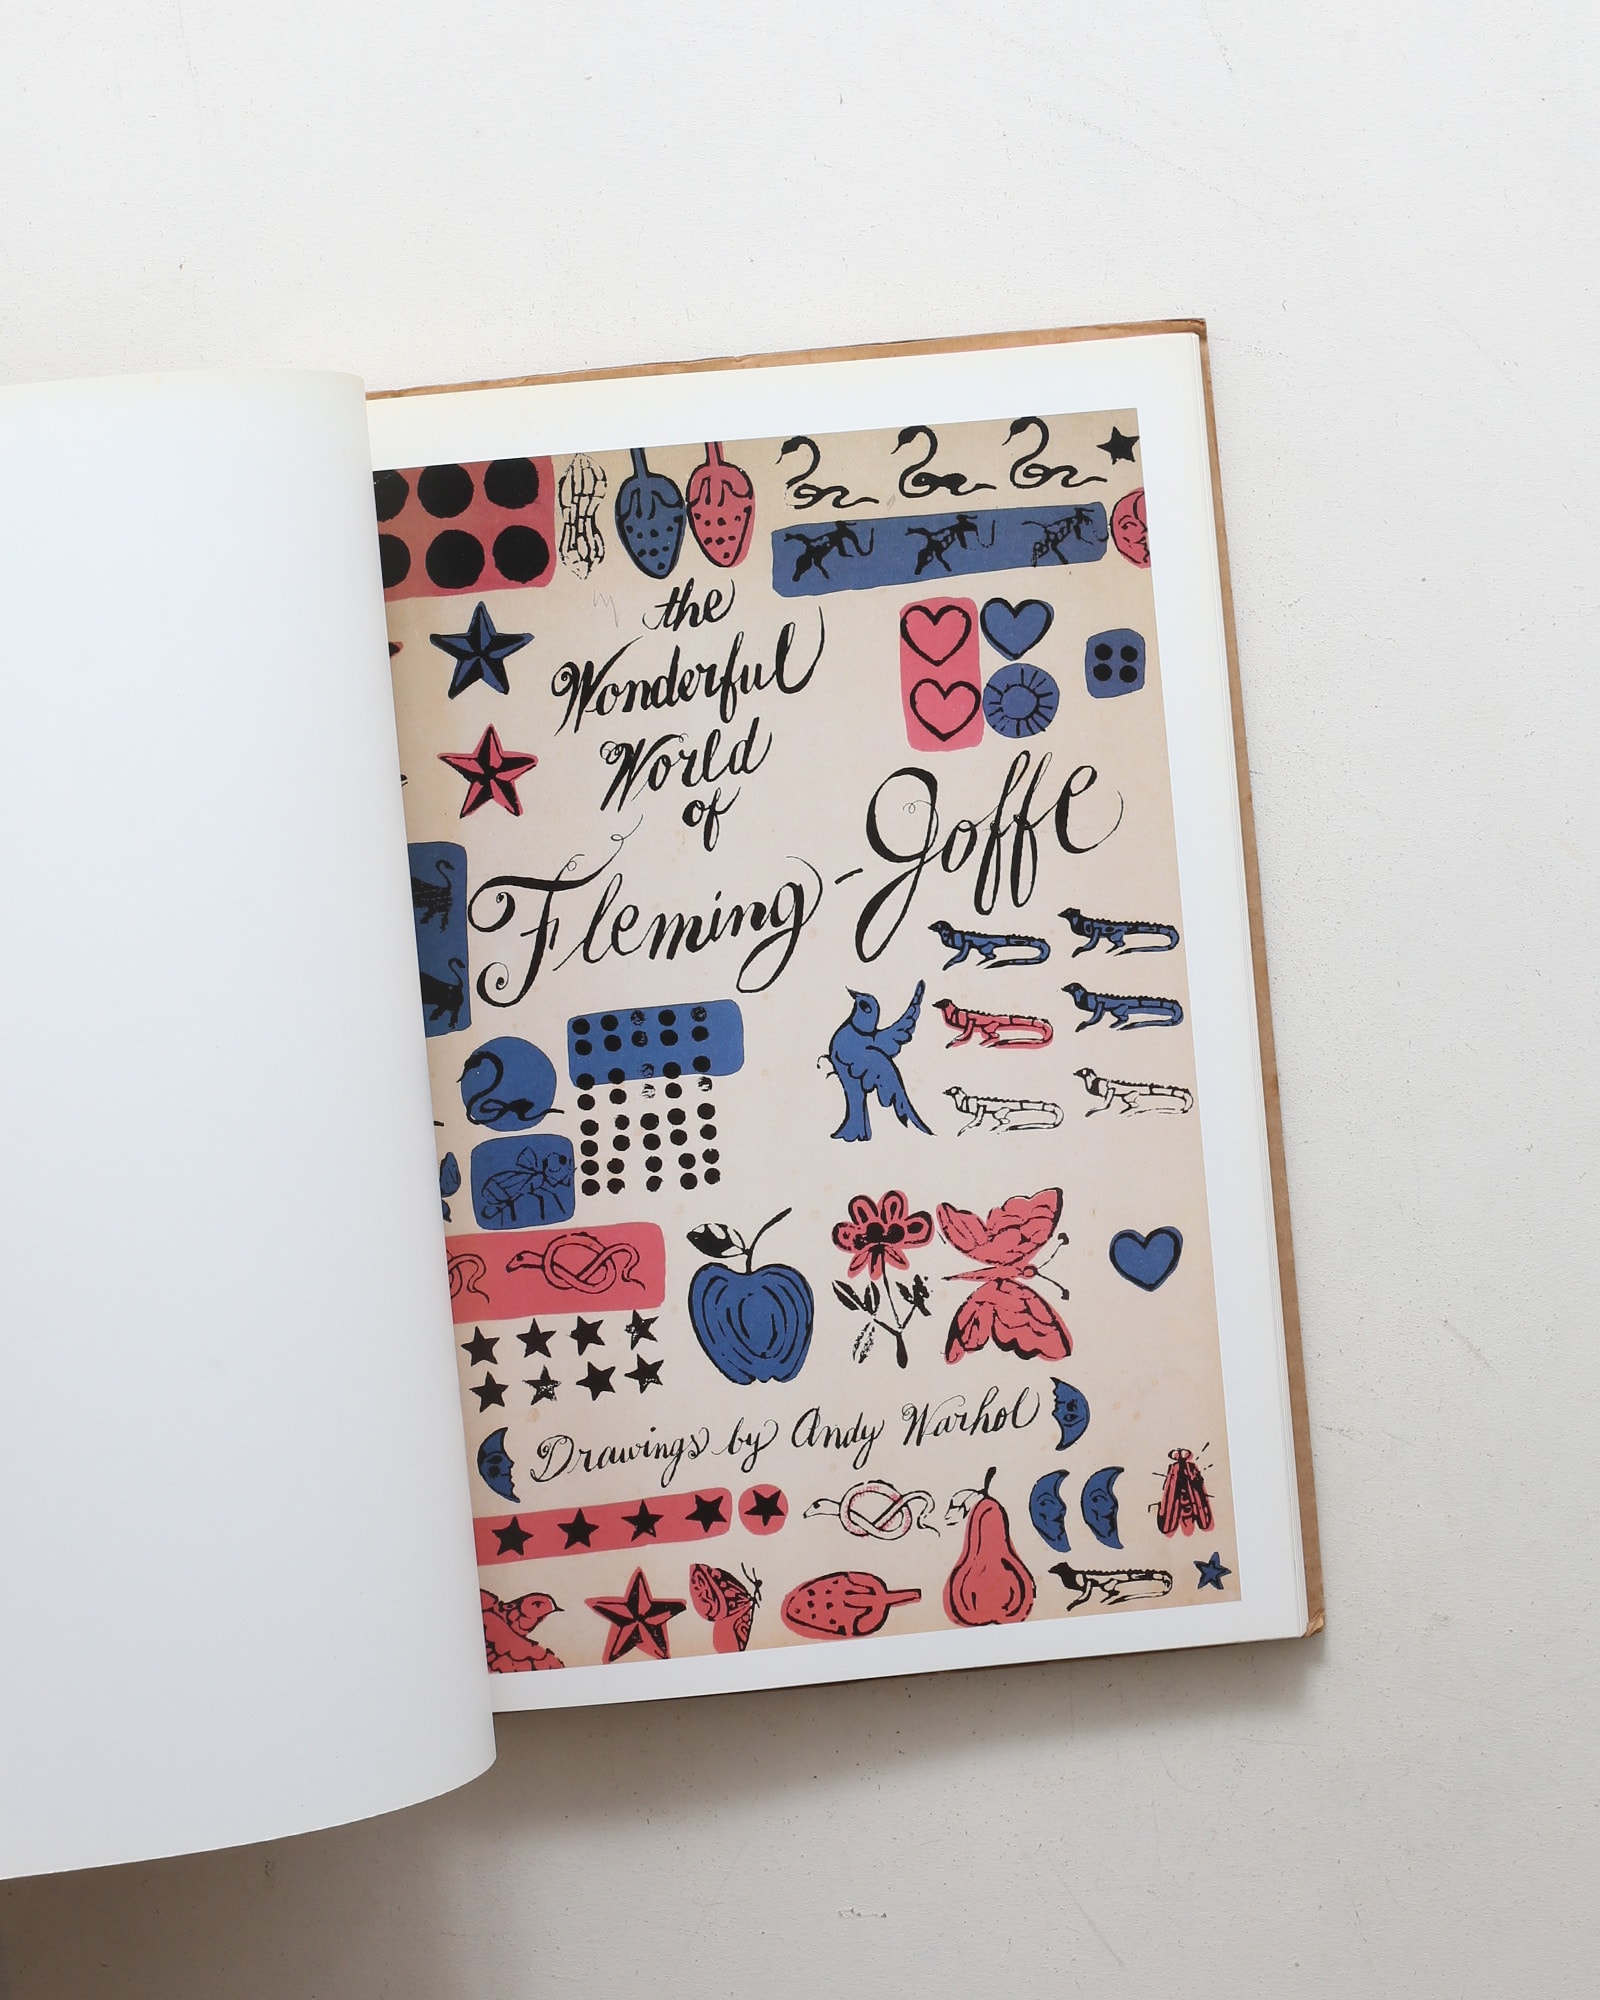 the
Wonderful
World
of
Fleming-Joffe
Drawings by Andy Warhol